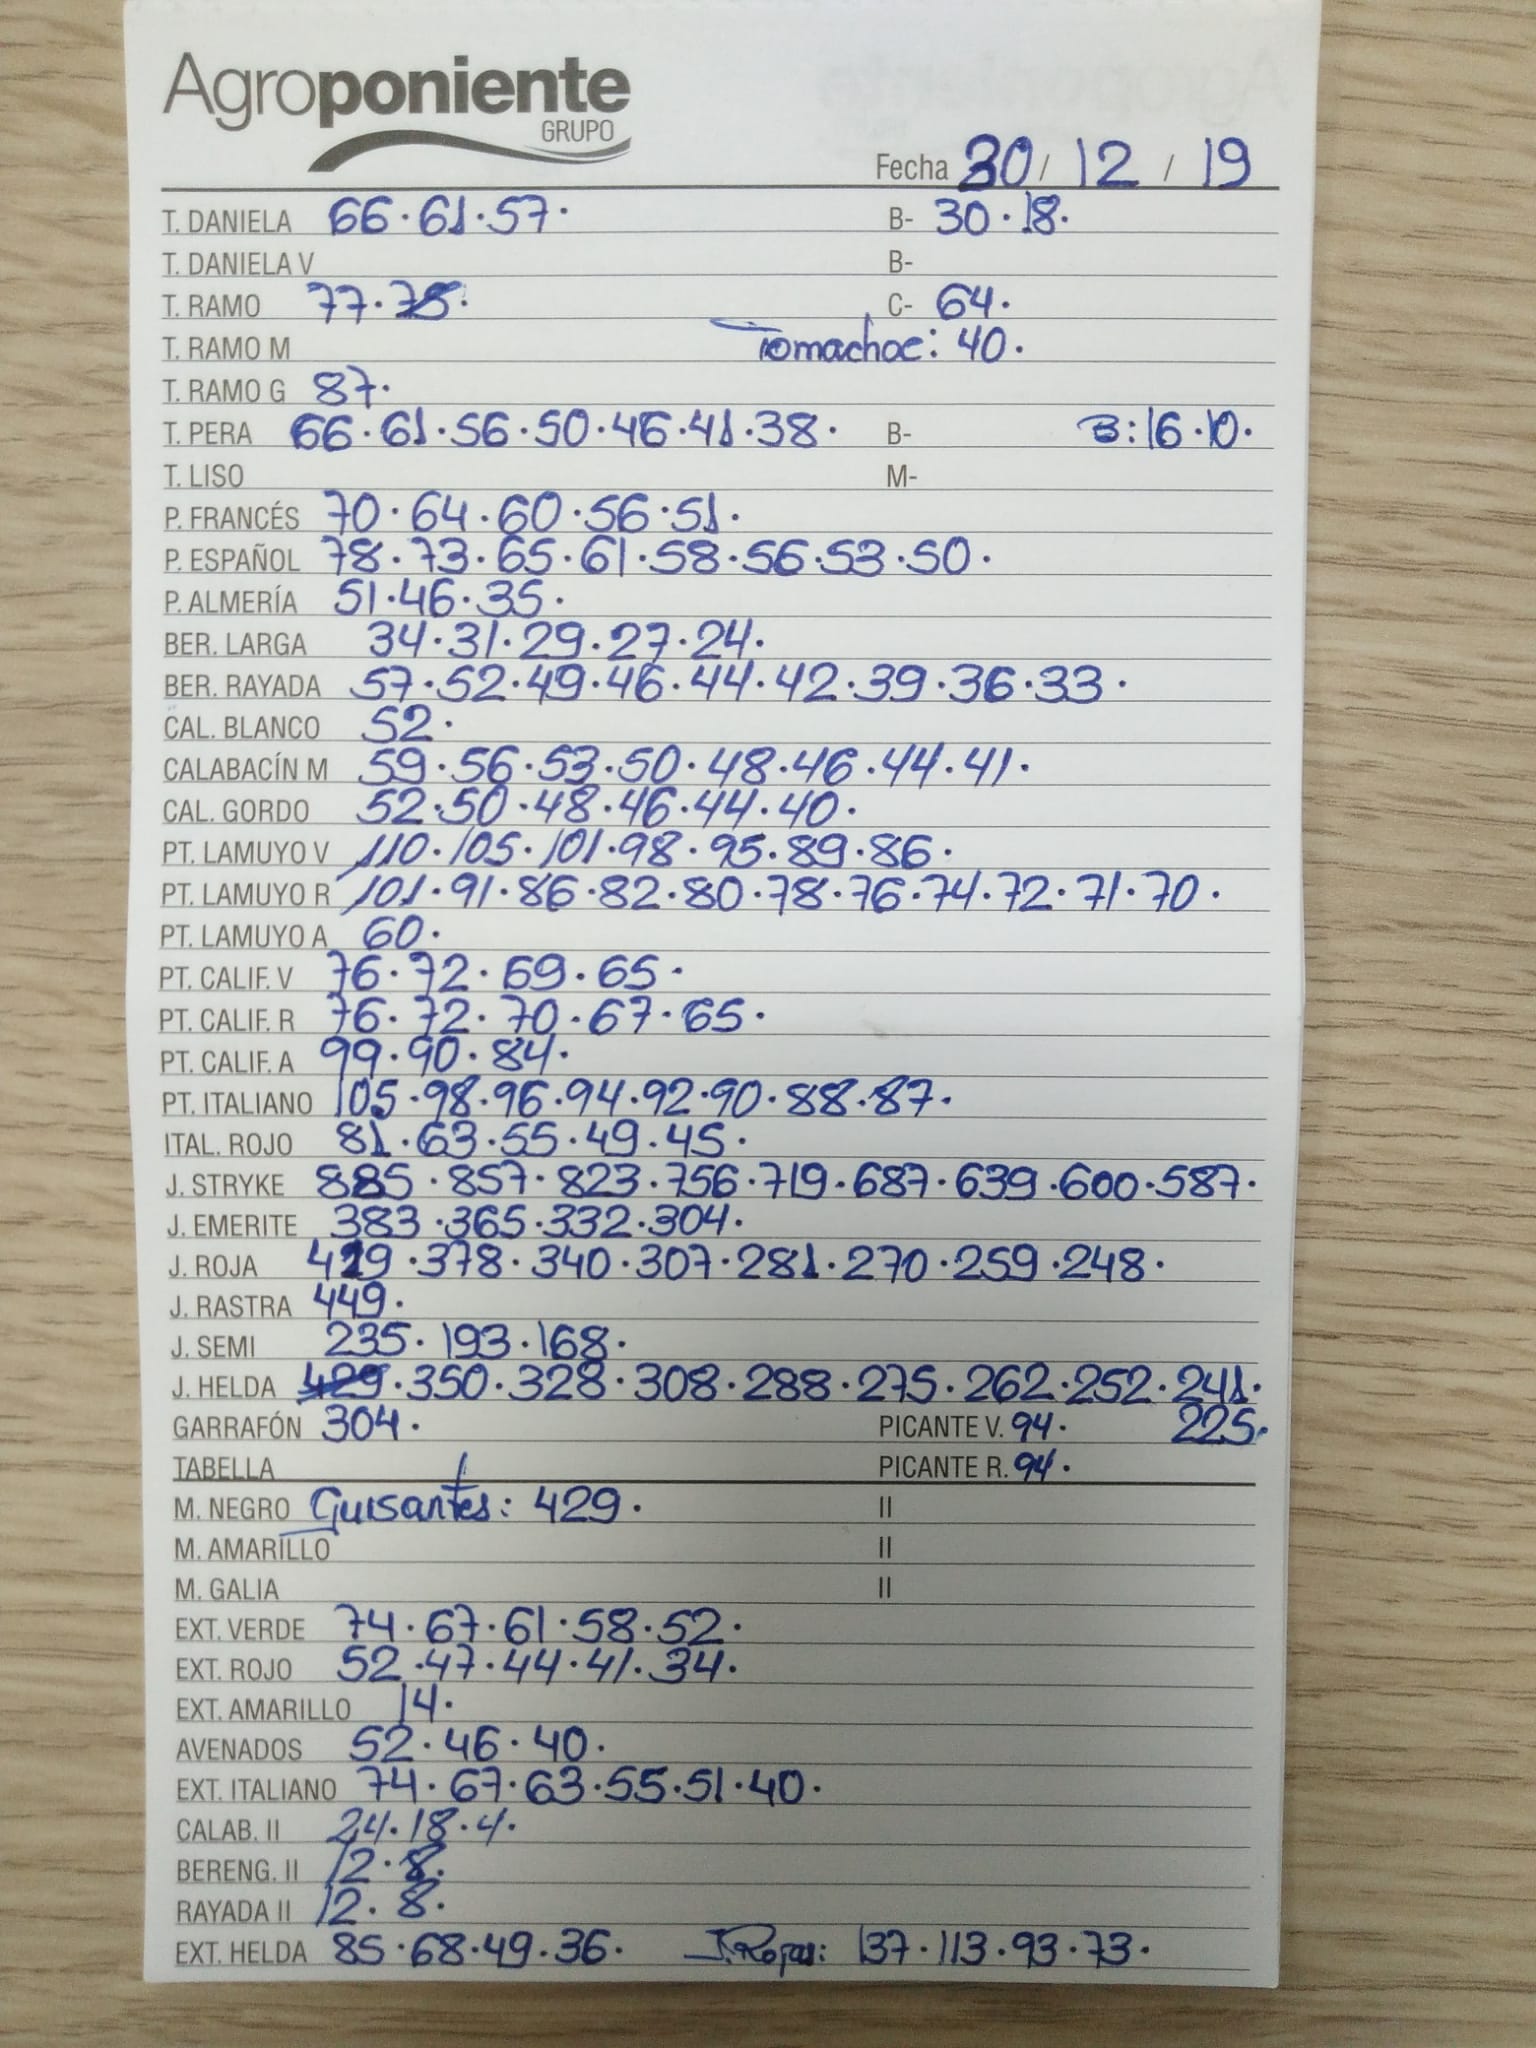 Agroponiente
GRUPO
Fecha 30 / 12 / 19
T. DANIELA 66.61.57. B- 30.18.
T. DANIELA V B-
T. RAMO 77.75. C- 64.
T. RAMO M Tomachoc: 40.
T. RAMO G 87.
T. PERA 66.61.56.50.46.41.38. B- B: 16.10.
T. LISO M-
P. FRANCÉS 70.64.60.56.51.
P. ESPAÑOL 78.73.65.61.58.56.53.50.
P. ALMERÍA 51.46.35.
BER. LARGA 34.31.29.27.24.
BER. RAYADA 57.52.49.46.44.42.39.36.33.
CAL. BLANCO 52.
CALABACÍN M 59.56.53.50.48.46.44.41.
CAL. GORDO 52.50.48.46.44.40.
PT. LAMUYO V 110.105.101.98.95.89.86.
PT. LAMUYO R 101.91.86.82.80.78.76.74.72.71.70.
PT. LAMUYO A 60.
PT. CALIF. V 76.72.69.65.
PT. CALIF. R 76.72.70.67.65.
PT. CALIF. A 99.90.84.
PT. ITALIANO 105.98.96.94.92.90.88.87.
ITAL. ROJO 81.63.55.49.45.
J. STRYKE 885.857.823.756.719.687.639.600.587.
J. EMERITE 383.365.332.304.
J. ROJA 419.378.340.307.281.270.259.248.
J. RASTRA 449.
J. SEMI 235.193.168.
J. HELDA 429.350.328.308.288.275.262.252.241.
GARRAFÓN 304. PICANTE V. 94. 225.
TABELLA PICANTE R. 94.
M. NEGRO Guisantes: 429. II
M. AMARILLO II
M. GALIA II
EXT. VERDE 74.67.61.58.52.
EXT. ROJO 52.47.44.41.34.
EXT. AMARILLO 14.
AVENADOS 52.46.40.
EXT. ITALIANO 74.67.63.55.51.40.
CALAB. II 24.18.4.
BERENG. II 12.8.
RAYADA II 12.8.
EXT. HELDA 85.68.49.36. J. Rojas: 137.113.93.73.